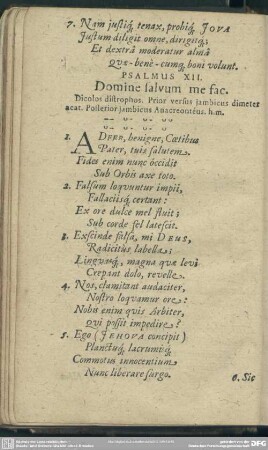 7. Nam justiq́; tenax, probiq́; JOVA
Justum diligit omne, dirigitq́;
Et dextrâ moderatur almâ
Quæ-benè-cumq́; boni volunt.
PSALMUS XII.
Domine salvum me fac.
Dicolos distrophos. Prior versus jambicus dimeter
acat. Posterior jambicus Anacreontéus. h.m.
1. ADfer, benigne, Cœtibus
Pater, tuis salutem.
Fides enim nunc óccidit
Sub Orbis axe toto.
2. Falsum loqvuntur impii,
Fallaciisq́; certant:
Ex ore dulce mel fluit;
Sub corde fel latescit.
3. Exscinde falsa, mi DEUS,
Radicitùs labella;
Linguasq́; magna quæ levi
Crepant dolo, revelle.
4. Nos, clamitant audaciter,
Nostro loqvamur ore:
Nobis enim quis Arbiter,
Qvi possit impedire?
5. Ego (JEHOVA concipit)
Planctuq́; lacrumisq́;
Commotus innocentium
Nunc liberare surgo.
6. Sic